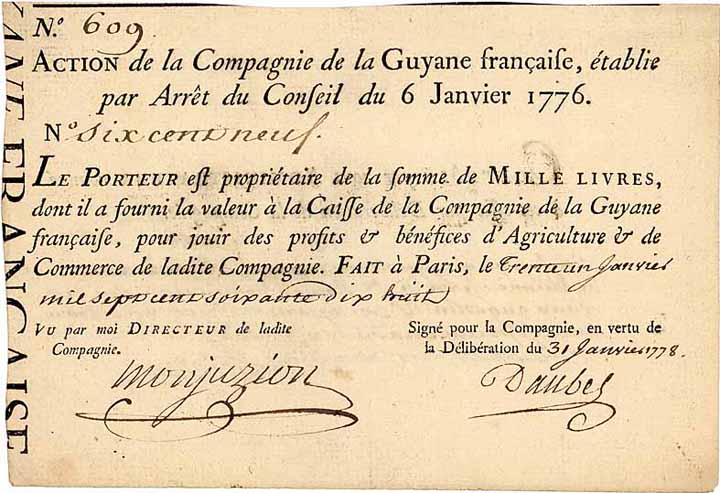 N.º 609
ACTION de la Compagnie de la Guyane françaiſe, établie
par Arrêt du Conſeil du 6 Janvier 1776.
Nº six cent neuf.
LE PORTEUR eſt propriétaire de la ſomme de MILLE LIVRES,
dont il a fourni la valeur à la Caiſſe de la Compagnie de la Guyane
françaiſe, pour jouir des profits & bénéfices d'Agriculture & de
Commerce de ladite Compagnie. FAIT à Paris, le trente un Janvier
mil sept cent soixante dix huit
VU par moi DIRECTEUR de ladite
Compagnie.
Monjuzion
Signé pour la Compagnie, en vertu de
la Délibération du 31 Janvier 1778.
Daubes
YANE FRANÇAISE